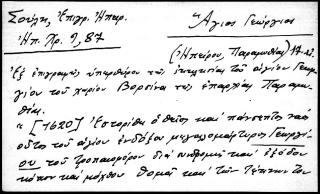 Σούλη, Ἐπιγρ. Ἠπειρ. Ἅγιος Γεώργιος
Ἠπ. Χρ. 9, 87
(Ἤπειρος, Παραμυθία) 17 αἰ.
Ἐξ ἐπιγραφῆς ὑπερθύρου τῆς ἐκκλησίας τοῦ ἁγίου Γεωρ-
γίου τοῦ χωρίου Βορσίνα τῆς ἐπαρχίας Παραμυ-
θίας.
"[1620] Ἐστορίθη ὁ θεῖος καὶ πάνσεπτος ναὸ
οὗτο τοῦ ἁγίου ἐνδόξου μεγαλομάρτυρος Γεωργί-
ου τοῦ τροπαιοφόρου διὰ συνδρομῆς καὶ ἐξόδου
κόπου καὶ μόχθου θομᾶ καὶ τῶν τέκνων του